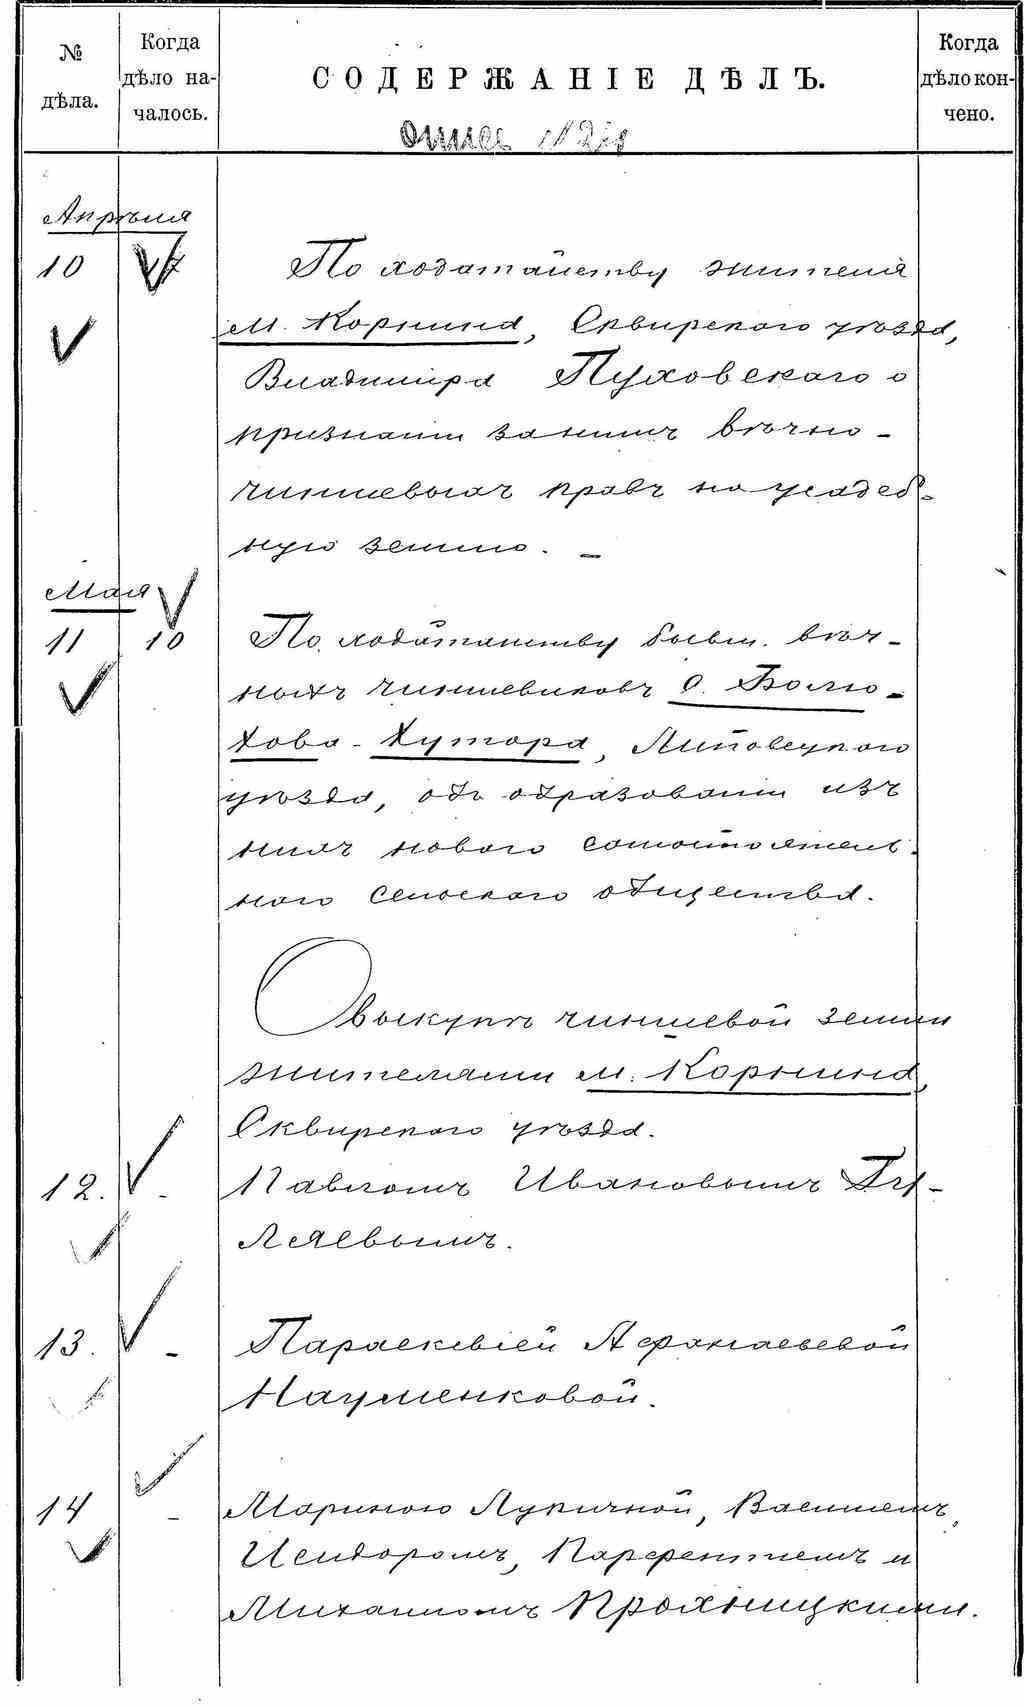 № дѣла.
Когда дѣло на-
чалось.
СОДЕРЖАНІЕ ДѢЛЪ.
Когда дѣло кон-
чено.
Опись
Апрѣля
10 По ходатайству жителя
м. Корнина, Сквирскаго уѣзда,
Владимира Пуховскаго о
признании за нимъ вѣчно-
чиншевыхъ правъ на усадеб-
ную землю. –
Мая
11 10 По ходатайству бывш. вѣч-
ныхъ чиншевиковъ с.
Хова-Хутора, Липовецкаго
уѣзда, объ образовании изъ
нихъ новаго самостоятель-
ного сельскаго общества.
О выкупѣ чиншевой земли
жителями м. Корнина,
Сквирскаго уѣзда.
12. - Павломъ Ивановымъ Гу-
ляевымъ.
13. - Параскевіей Афанасьевой
Науменковой.
14 - Мариною Лукичной, Василіемъ,
Исидоромъ, Парфентіемъ и
Михаиломъ